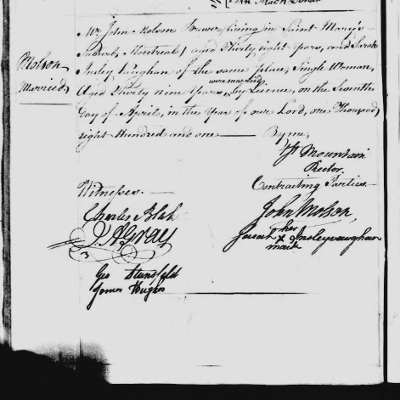 Molson
Married
Mr John Molson Brewer, living in Saint Mary's
Suburb, Montreal, aged Thirty eight years, and Sarah
Insley Vaughan of the same place, Single Woman,
were married
Aged Thirty nine Years, by Licence, on the Seventh
Day of April, in the Year of our Lord, one Thousand
eight Hundred and one — By me,
Jn Mountain
Rector
Witnesses.
Contracting Parties
Charles Blake
John Molson
J. A. Gray
her
Sarah X Insley vaughan
mark
Geo Stansfeld
James Hughes